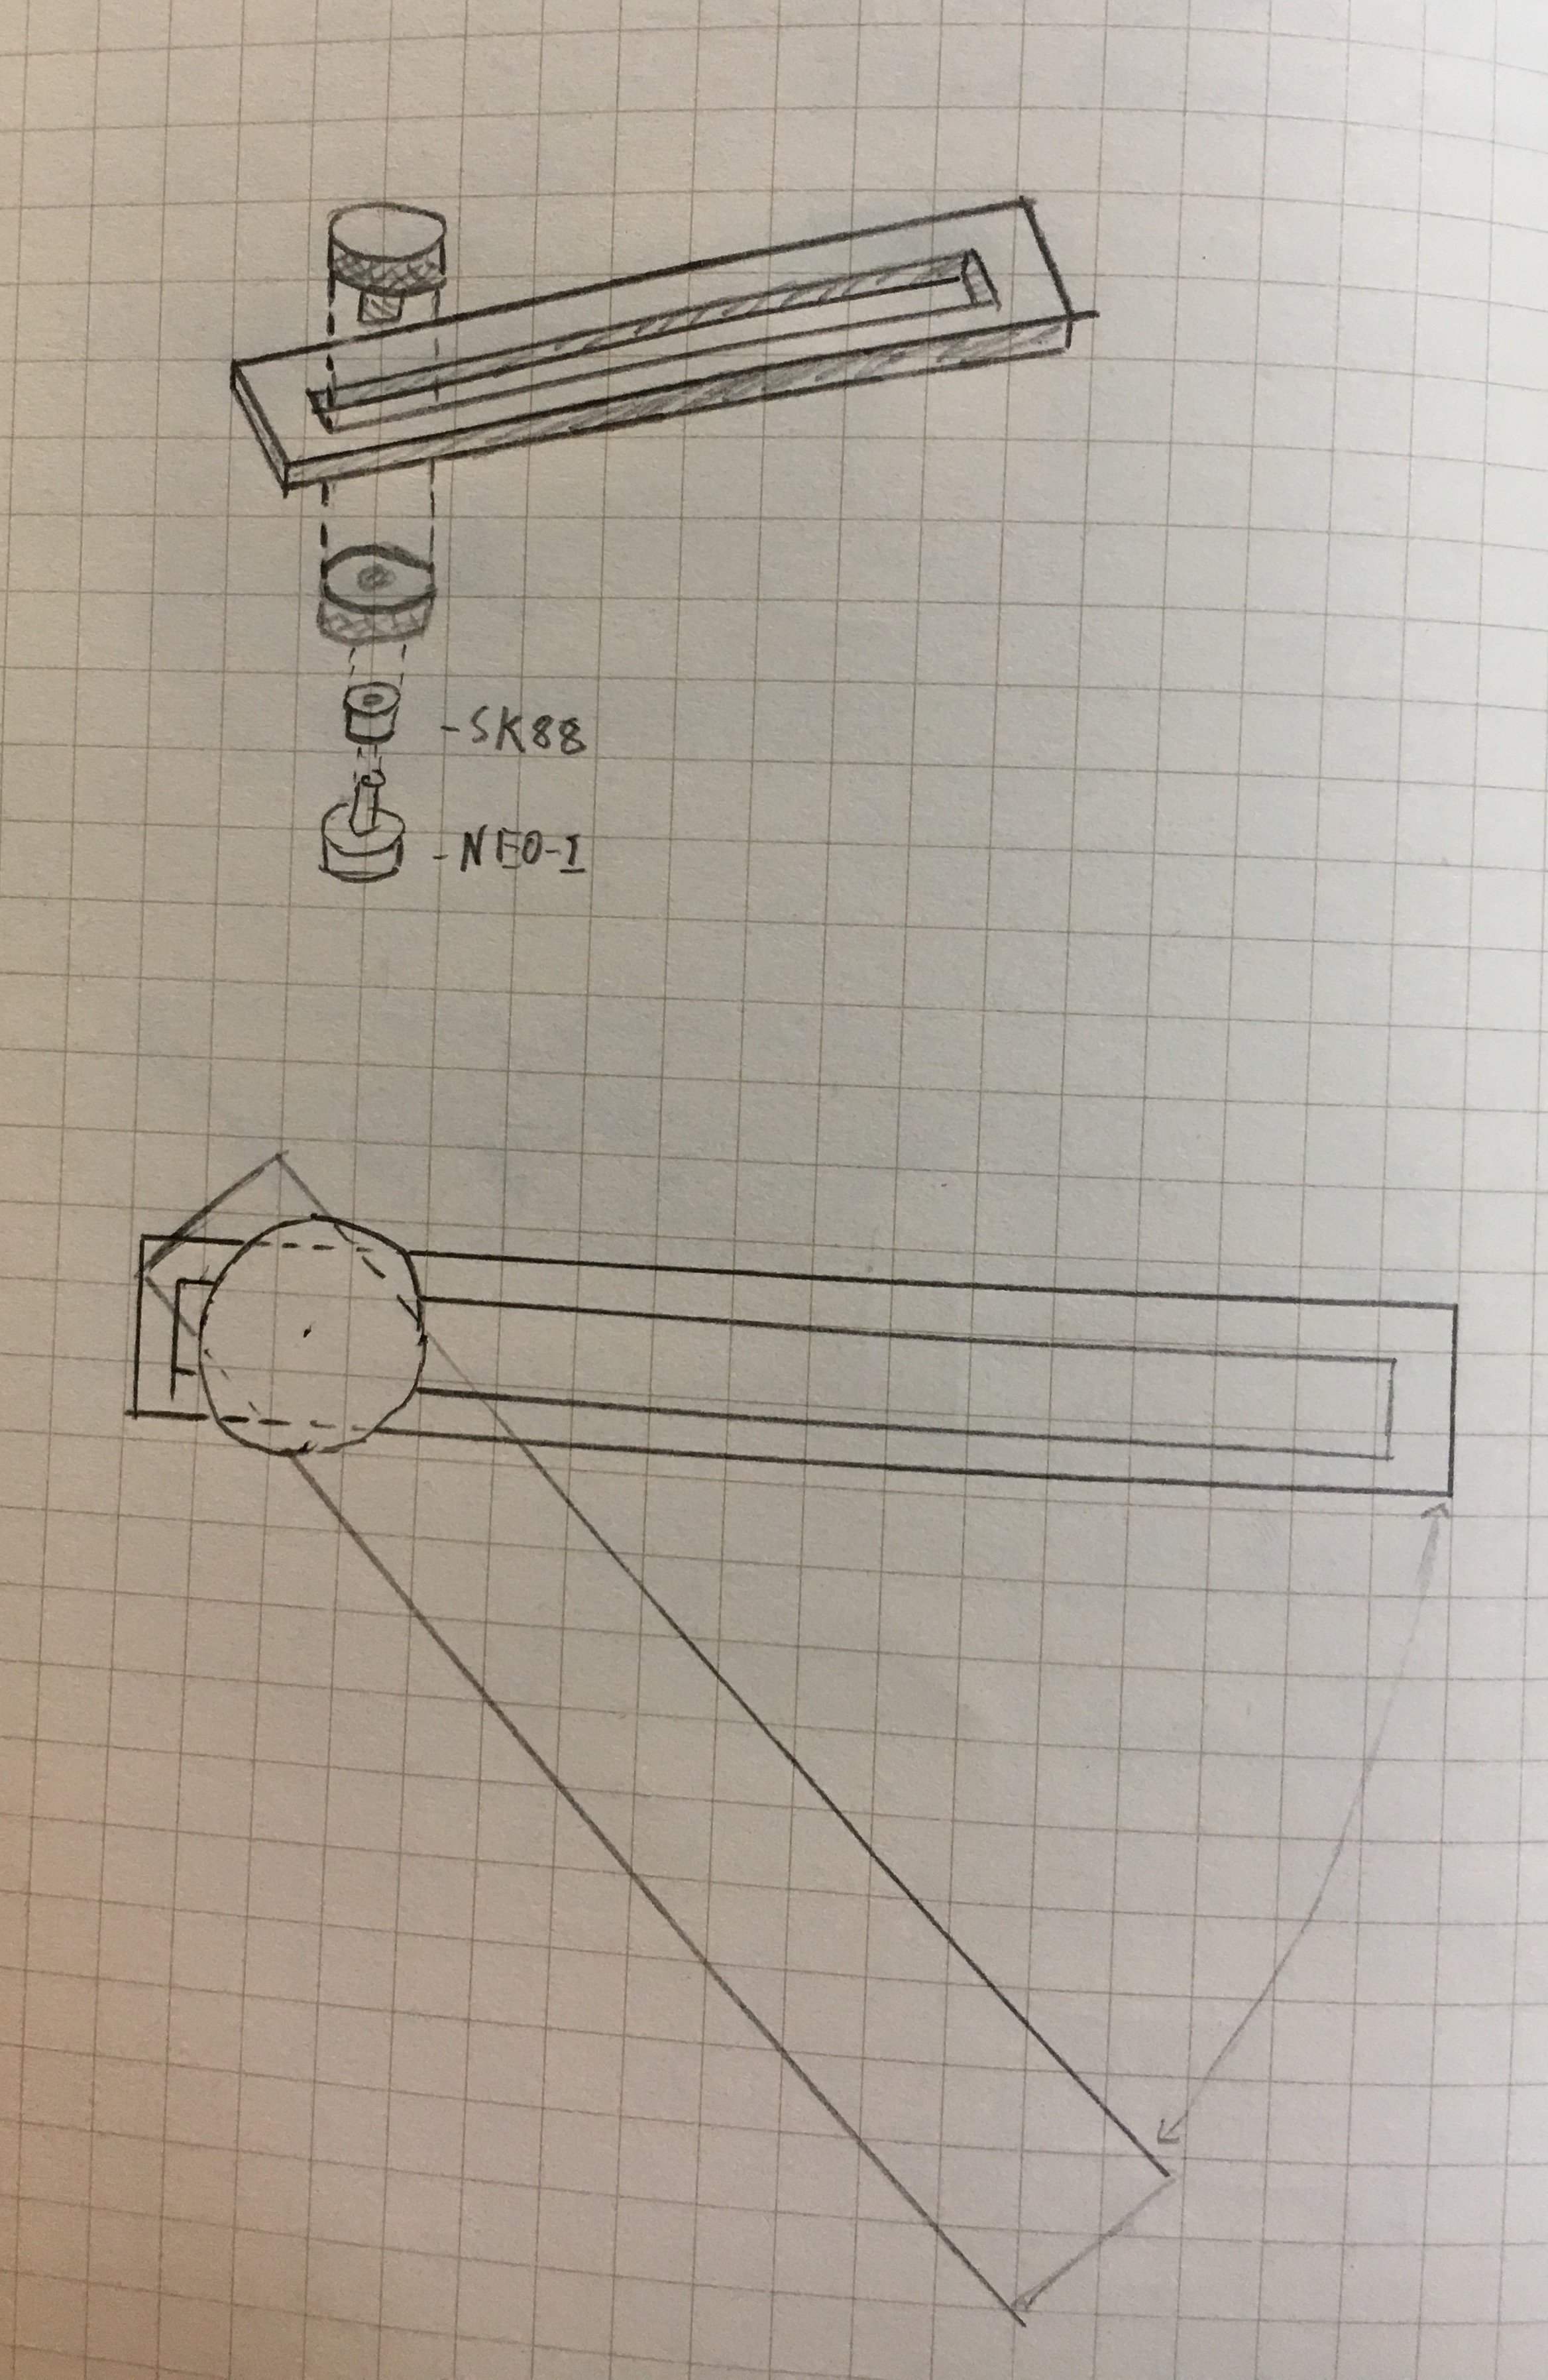 -SK88
-NEO-I